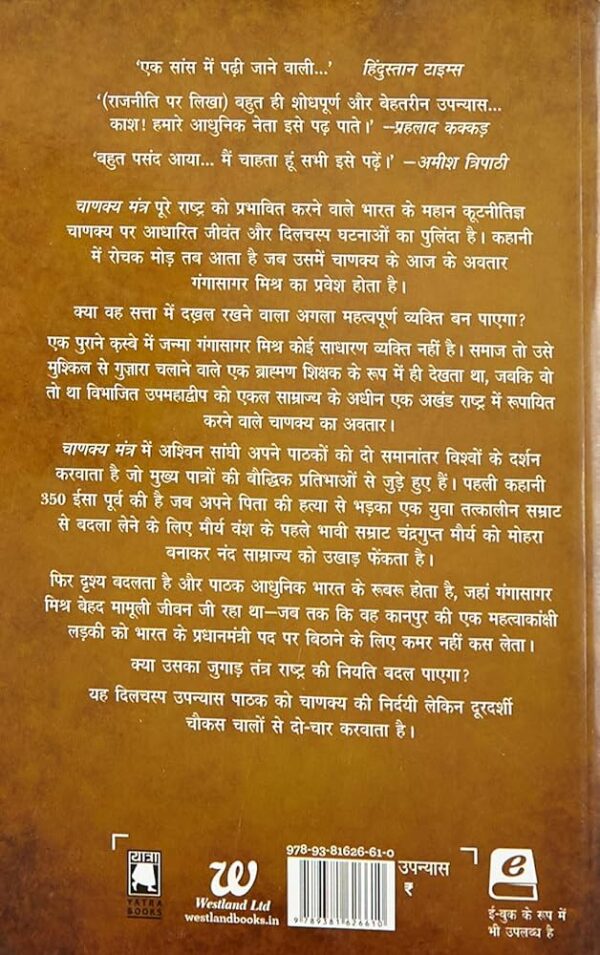 ‘एक सांस में पढ़ी जाने वाली...’ हिंदुस्तान टाइम्स
‘(राजनीति पर लिखा) बहुत ही शोधपूर्ण और बेहतरीन उपन्यास...
काश! हमारे आधुनिक नेता इसे पढ़ पाते।’ —प्रहलाद कक्कड़
‘बहुत पसंद आया... मैं चाहता हूं सभी इसे पढ़ें।’ —अमीश त्रिपाठी
चाणक्य मंत्र पूरे राष्ट्र को प्रभावित करने वाले भारत के महान कूटनीतिज्ञ
चाणक्य पर आधारित जीवंत और दिलचस्प घटनाओं का पुलिंदा है। कहानी
में रोचक मोड़ तब आता है जब उसमें चाणक्य के आज के अवतार
गंगासागर मिश्र का प्रवेश होता है।
क्या वह सत्ता में दख़ल रखने वाला अगला महत्वपूर्ण व्यक्ति बन पाएगा?
एक पुराने क़स्बे में जन्मा गंगासागर मिश्र कोई साधारण व्यक्ति नहीं है। समाज तो उसे
मुश्किल से गुज़ारा चलाने वाले एक ब्राह्मण शिक्षक के रूप में ही देखता था, जबकि वो
तो था विभाजित उपमहाद्वीप को एकल साम्राज्य के अधीन एक अखंड राष्ट्र में रूपायित
करने वाले चाणक्य का अवतार।
चाणक्य मंत्र में अश्विन सांघी अपने पाठकों को दो समानांतर विश्वों के दर्शन
करवाता है जो मुख्य पात्रों की बौद्धिक प्रतिभाओं से जुड़े हुए हैं। पहली कहानी
350 ईसा पूर्व की है जब अपने पिता की हत्या से भड़का एक युवा तत्कालीन सम्राट
से बदला लेने के लिए मौर्य वंश के पहले भावी सम्राट चंद्रगुप्त मौर्य को मोहरा
बनाकर नंद साम्राज्य को उखाड़ फेंकता है।
फिर दृश्य बदलता है और पाठक आधुनिक भारत के रूबरू होता है, जहां गंगासागर
मिश्र बेहद मामूली जीवन जी रहा था—जब तक कि वह कानपुर की एक महत्वाकांक्षी
लड़की को भारत के प्रधानमंत्री पद पर बिठाने के लिए कमर नहीं कस लेता।
क्या उसका जुगाड़ तंत्र राष्ट्र की नियति बदल पाएगा?
यह दिलचस्प उपन्यास पाठक को चाणक्य की निर्दयी लेकिन दूरदर्शी
चौकस चालों से दो-चार करवाता है।
978-93-81626-61-0
यात्रा
YATRA
BOOKS
W
Westland Ltd
westlandbooks.in
9 789381 626610
उपन्यास
₹
e
ई-बुक के रूप में
भी उपलब्ध है